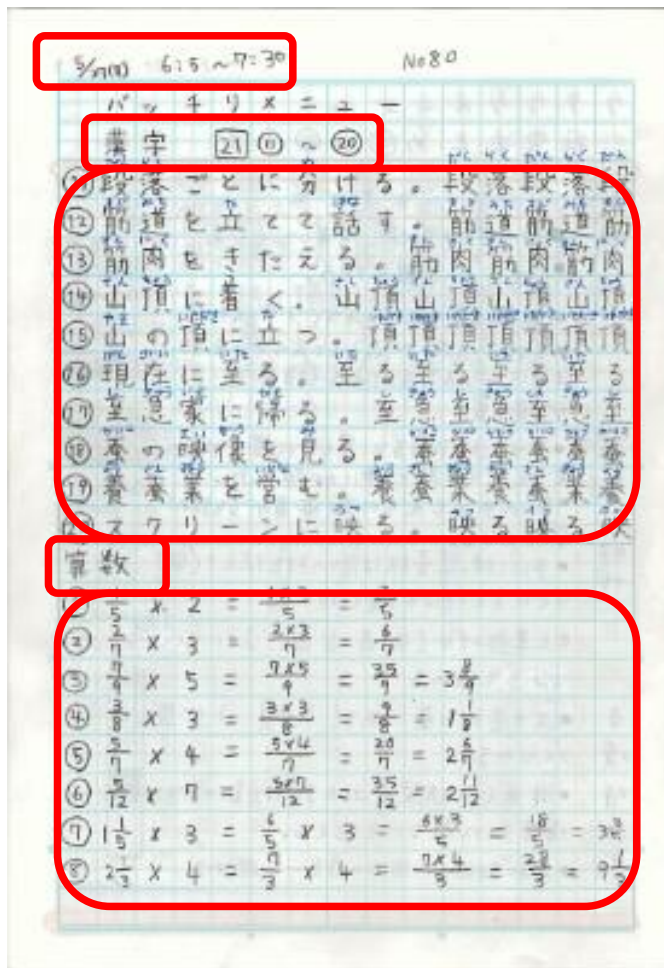 5/27(月) 6:5～7:30 No80
パッチリメニュー
漢字 21 ⑪～⑳
⑪段落ごとに分ける。段落段落段
⑫筋道を立てて話す。筋道筋道筋
⑬筋肉をきたえる。筋肉筋肉筋肉
⑭山頂に着く。山頂山頂山頂山頂
⑮山の頂に立つ。頂頂頂頂頂頂頂
⑯現在に至る。至る至る至る至る
⑰至急家に帰る。至急至急至急至
⑱蚕の映像を見る。蚕蚕蚕蚕蚕
⑲養蚕業を営む。養蚕業養蚕業養
⑳スクリーンに映る。映る映る映
算数
① 1/5 × 2 = 1×2/5 = 2/5
② 2/7 × 3 = 2×3/7 = 6/7
③ 7/9 × 5 = 7×5/9 = 35/9 = 3 8/9
④ 3/8 × 3 = 3×3/8 = 9/8 = 1 1/8
⑤ 5/7 × 4 = 5×4/7 = 20/7 = 2 6/7
⑥ 5/12 × 7 = 5×7/12 = 35/12 = 2 11/12
⑦ 1 1/5 × 3 = 6/5 × 3 = 6×3/5 = 18/5 = 3 3/5
⑧ 2 1/3 × 4 = 7/3 × 4 = 7×4/3 = 28/3 = 9 1/3